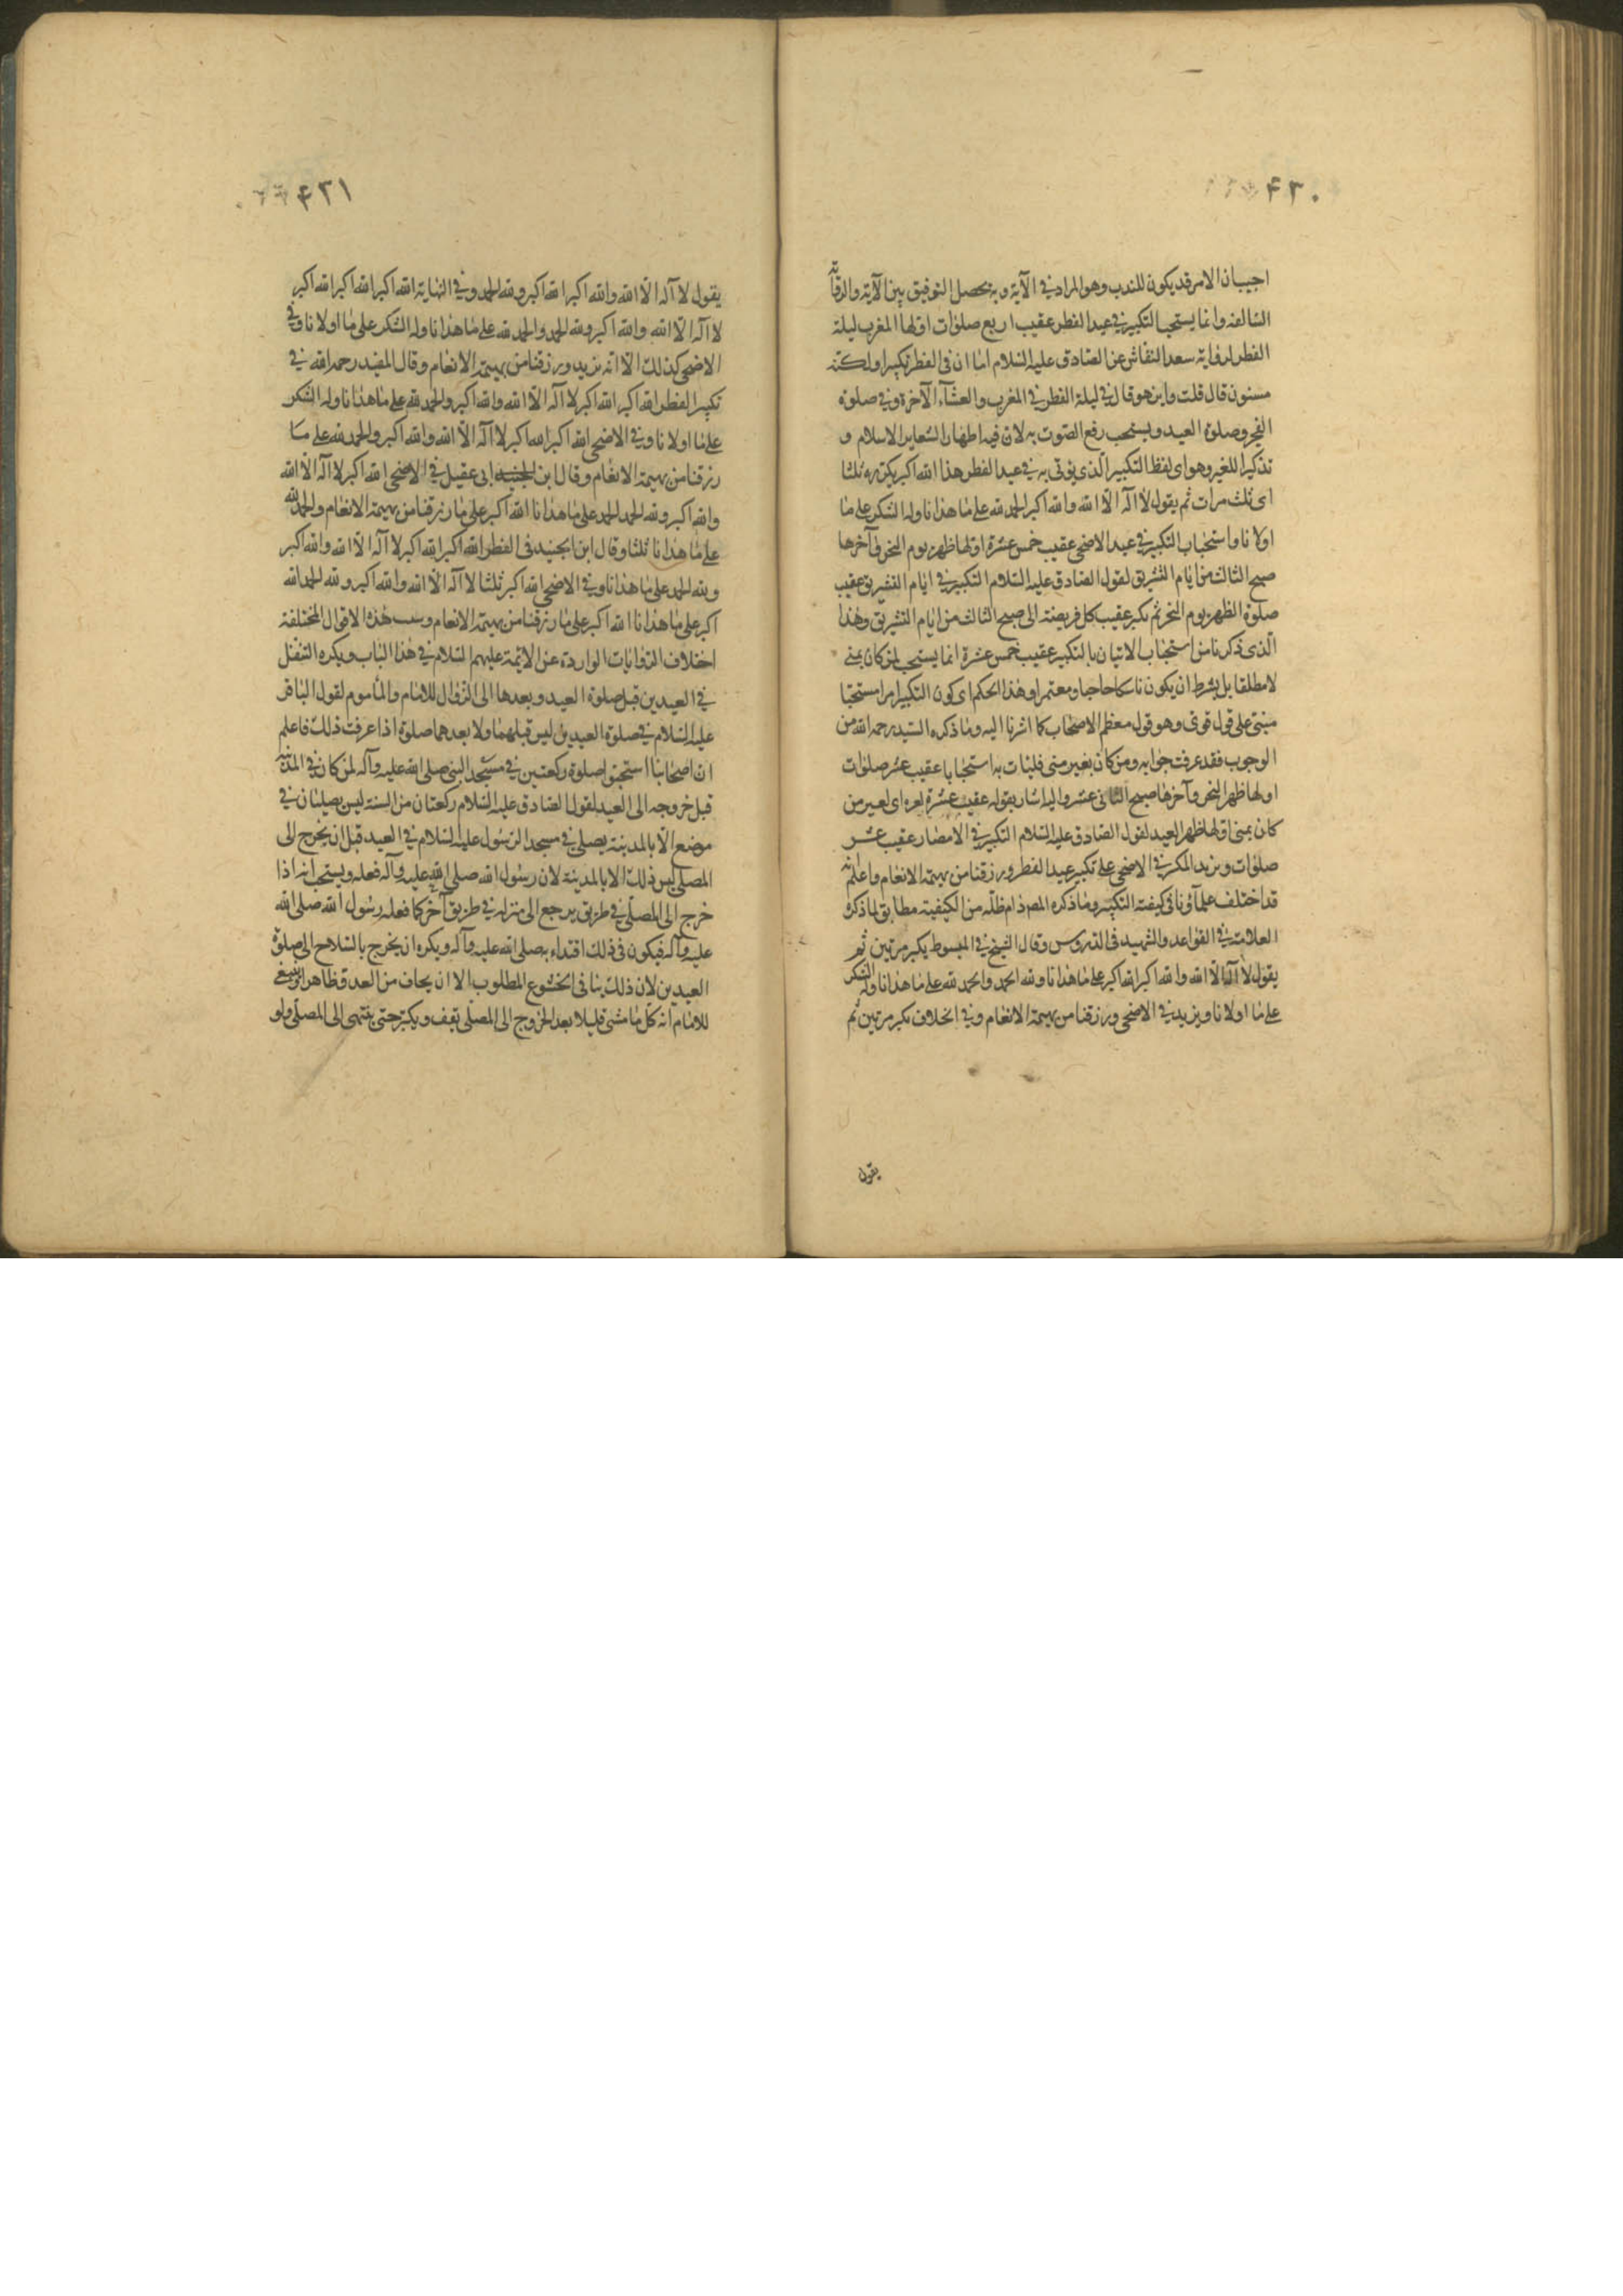 ۴۲۰
اجيب ان الامر قد يكون للندب وهو المراد في الآية وبه يحصل التوفيق بين الآية والرواية
السالفة وانما يستحب التكبير في عيد الفطر عقيب اربع صلوات اولها المغرب ليلة
الفطر لرواية سعد النقاش عن الصادق عليه السلام اما ان في الفطر تكبيرا ولكنه
مسنون قال قلت واين هو قال في ليلة الفطر في المغرب والعشآء الآخرة وفي صلوة
الفجر وصلوة العيد ويستحب رفع الصوت به لان فيه اظهار الشعاير الاسلام و
تذكيرا للغير وهو اى لفظ التكبير الذى يؤتى به في عيد الفطر هذا الله اكبر يكرره ثلثا
اى ثلث مرات ثم يقول لا آله الا الله والله اكبر الحمد لله على ما هذانا وله الشكر على ما
اولانا واستحباب التكبير في عيد الاضحى عقيب خمس عشرة اولها ظهر يوم النحر وآخرها
صبح الثالث من ايام التشريق لقول الصادق عليه السلام التكبير في ايام التشريق عقيب
صلوة الظهر يوم النحر ثم يكبر عقيب كل فريضة الى صبح الثالث من ايام التشريق وهذا
الذى ذكرنا من استحباب الاتيان بالتكبير عقيب خمس عشرة انما يستحب لمن كان بمنى
لا مطلقا بل بشرط ان يكون ناسكا حاجا ومعتمرا وهذا الحكم اى كون التكبير امرا مستحبا
مبنى على قول قوى وهو قول معظم الاصحاب كما اشرنا اليه وما ذكره السيد رحمه الله من
الوجوب فقد عرفت جوابه ومن كان بغير منى فليات به استحبابا عقيب عشر صلوات
اولها ظهر النحر وآخرها صبح الثانى عشر واليه اشار بقوله عقيب عشرة لغيره اى لغير من
كان بمنى اولها ظهر العيد لقول الصادق عليه السلام التكبير في الامصار عقيب عشر
صلوات ويزيد المكبر في الاضحى على تكبير عيد الفطر ورزقنا من بهيمة الانعام واعلم انه
قد اختلف علمآؤنا في كيفية التكبير وما ذكره المص دام ظله من الكيفية مطابق لما ذكره
العلامة في القواعد والشهيد في الدروس وقال الشيخ في المبسوط يكبر مرتين ثم
يقول لا آله الا الله والله اكبر الله اكبر على ما هذانا ولله الحمد والحمد لله على ما هذانا وله الشكر
على ما اولانا ويزيد في الاضحى ورزقنا من بهيمة الانعام وفي الخلاف يكبر مرتين ثم
يقول
۴۲۱
يقول لا آله الا الله والله اكبر الله اكبر ولله الحمد وفي النهاية الله اكبر الله اكبر الله اكبر
لا آله الا الله والله اكبر ولله الحمد والحمد لله على ما هذانا وله الشكر على ما اولانا وفي
الاضحى كذلك الا انه يزيد ورزقنا من بهيمة الانعام وقال المفيد رحمه الله في
تكبير الفطر الله اكبر الله اكبر لا آله الا الله والله اكبر والحمد لله على ما هذانا وله الشكر
على ما اولانا وفي الاضحى الله اكبر الله اكبر لا آله الا الله والله اكبر والحمد لله على ما
رزقنا من بهيمة الانعام وقال ابن الجنيد ابى عقيل في الاضحى الله اكبر لا آله الا الله
والله اكبر ولله الحمد الحمد على ما هذانا الله اكبر على ما رزقنا من بهيمة الانعام والحمد لله
على ما هذانا ثلثا وقال ابن الجنيد في الفطر الله اكبر الله اكبر لا آله الا الله والله اكبر
ولله الحمد على ما هذانا وفي الاضحى الله اكبر ثلثا لا آله الا الله والله اكبر ولله الحمد الله
اكبر على ما هذانا الله اكبر على ما رزقنا من بهيمة الانعام وسبب هذه الاقوال المختلفة
اختلاف الروايات الواردة عن الائمة عليهم السلام في هذا الباب ويكره التنفل
في العيدين قبل صلوة العيد وبعدها الى الزوال للامام والمأموم لقول الباقر
عليه السلام في صلوة العيدين ليس قبلهما ولا بعدهما صلوة اذا عرفت ذلك فاعلم
ان اصحابنا استحبوا صلوة ركعتين في مسجد النبى صلى الله عليه وآله لمن كان في المدينة
قبل خروجه الى العيد لقول الصادق عليه السلام ركعتان من السنة ليس يصليان في
موضع الا بالمدينة يصلى في مسجد الرسول عليه السلام في العيد قبل ان يخرج الى
المصلى ليس ذلك الا بالمدينة لان رسول الله صلى الله عليه وآله فعله ويستحب انه اذا
خرج الى المصلى في طريق يرجع الى منزله في طريق آخر كما فعله رسول الله صلى الله
عليه وآله فيكون في ذلك اقتداء به صلى الله عليه وآله ويكره ان يخرج بالسلاح الى صلوة
العيدين لان ذلك ينافى الخشوع المطلوب الا ان يخاف من العدو ظاهرا وينبغى
للامام انه كل ما مشى قليلا بعد الخروج الى المصلى يقف ويكبر حتى ينتهى الى المصلى ولو